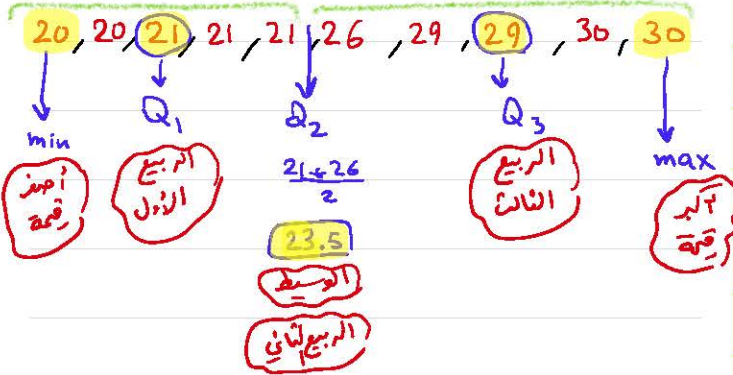 20 , 20 , 21 , 21 , 21 , 26 , 29 , 29 , 30 , 30
min Q1 Q2 Q3 max
أصغر قيمة
الربيع الأول
21+26
2
23.5
الوسيط
الربيع الثاني
الربيع الثالث
أكبر قيمة